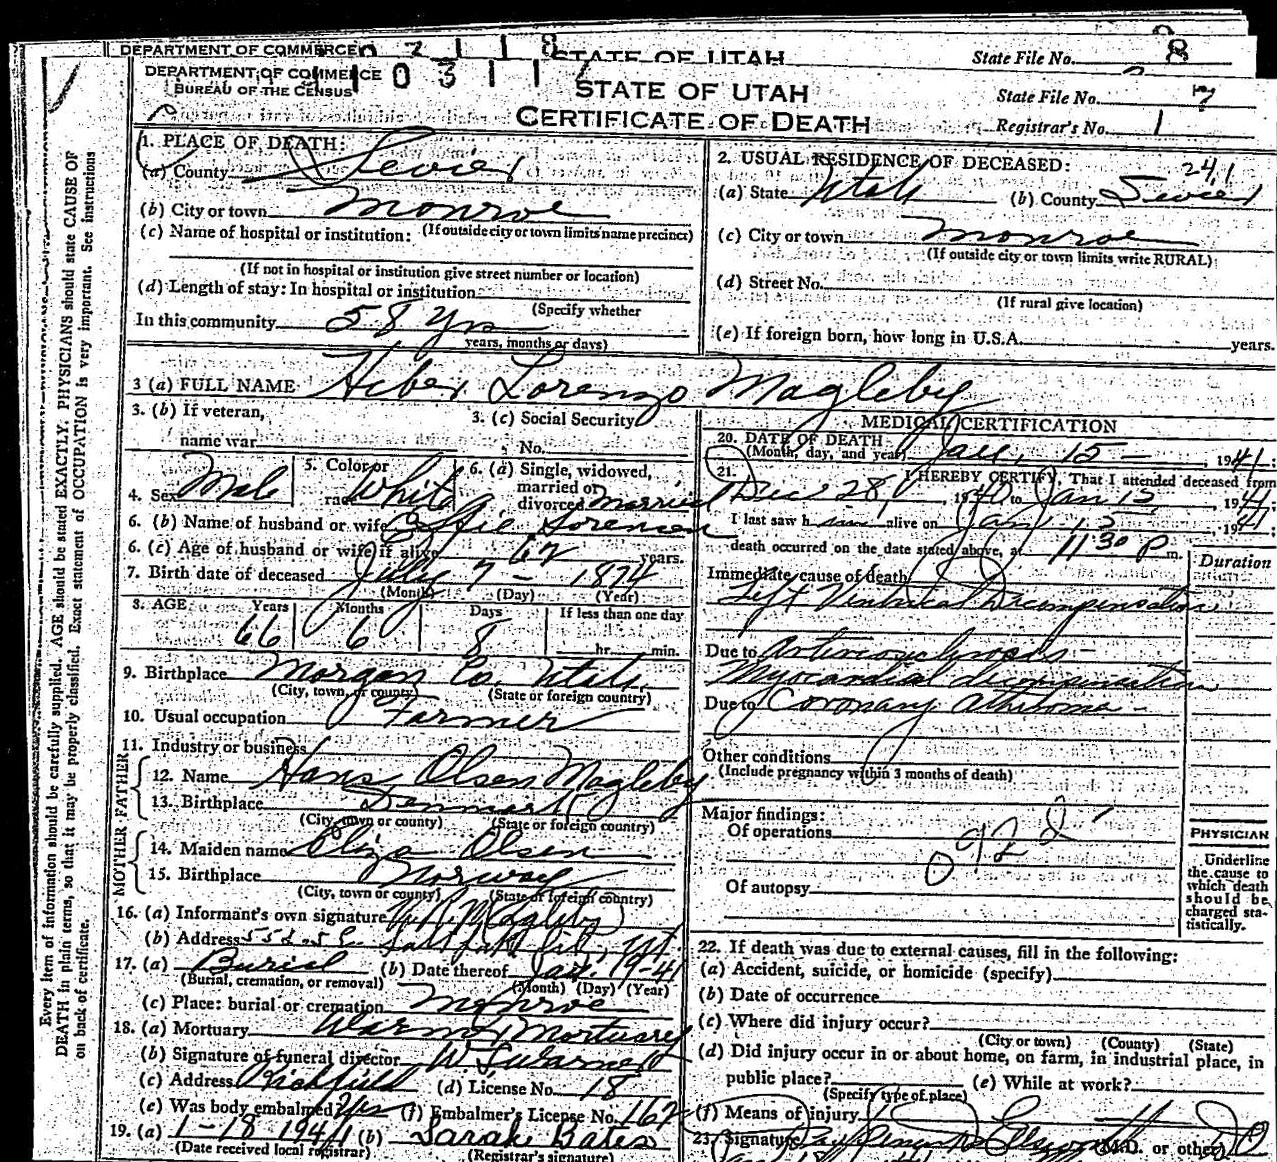 DEPARTMENT OF COMMERCE
STATE OF UTAH
State File No. 8
DEPARTMENT OF COMMERCE
BUREAU OF THE CENSUS
STATE OF UTAH
CERTIFICATE OF DEATH
State File No. 7
Registrar's No. 1
Every item of information should be carefully supplied. AGE should be stated EXACTLY. PHYSICIANS should state CAUSE OF
DEATH in plain terms, so that it may be properly classified. Exact statement of OCCUPATION is very important. See instructions
on back of certificate.
1. PLACE OF DEATH:
(a) County Sevier
(b) City or town Monroe
(If outside city or town limits name precinct)
(c) Name of hospital or institution:
(If not in hospital or institution give street number or location)
(d) Length of stay: In hospital or institution
(Specify whether
In this community 58 yrs
years, months or days)
2. USUAL RESIDENCE OF DECEASED:
241
(a) State Utah (b) County Sevier
(c) City or town Monroe
(If outside city or town limits write RURAL)
(d) Street No.
(If rural give location)
(e) If foreign born, how long in U.S.A. years.
3 (a) FULL NAME Heber Lorenzo Magleby
3. (b) If veteran,
name war
3. (c) Social Security
No.
4. Sex Male
5. Color or
race White
6. (a) Single, widowed,
married or
divorced married
6. (b) Name of husband or wife Effie Sorensen
6. (c) Age of husband or wife if alive 62 years.
7. Birth date of deceased July 7 - 1874
(Month) (Day) (Year)
8. AGE Years Months Days If less than one day
66 6 8 hr. min.
9. Birthplace Morgan Co. Utah
(City, town, or county) (State or foreign country)
10. Usual occupation Farmer
11. Industry or business
FATHER
12. Name Hans Olsen Magleby
13. Birthplace Denmark
(City, town or county) (State or foreign country)
MOTHER
14. Maiden name Eliza Olsen
15. Birthplace Norway
(City, town or county) (State or foreign country)
16. (a) Informant's own signature Magleby
(b) Address
17. (a) Burial (b) Date thereof Jan. 19-41
(Burial, cremation, or removal) (Month) (Day) (Year)
(c) Place: burial or cremation Monroe
18. (a) Mortuary Mortuary
(b) Signature of funeral director
(c) Address Richfield (d) License No. 18
(e) Was body embalmed? Yes (f) Embalmer's License No. 162
19. (a) 1-18 1941 (b) Sarah Bates
(Date received local registrar) (Registrar's signature)
MEDICAL CERTIFICATION
20. DATE OF DEATH
(Month, day, and year) Jan. 15 - , 1941:
21. I HEREBY CERTIFY, That I attended deceased from
Dec 28, 1940 to Jan 15, 1941
I last saw him alive on Jan 15, 1941,
death occurred on the date stated above, at 11 30 P m.
Duration
Immediate cause of death
Left Ventrical Decompensation
Due to Arteriosclerosis -
Myocardial decompensation
Due to Coronary Atheroma -
Other conditions
(Include pregnancy within 3 months of death)
Major findings:
Of operations
Of autopsy
PHYSICIAN
Underline
the cause to
which death
should be
charged sta-
tistically.
22. If death was due to external causes, fill in the following:
(a) Accident, suicide, or homicide (specify)
(b) Date of occurrence
(c) Where did injury occur?
(City or town) (County) (State)
(d) Did injury occur in or about home, on farm, in industrial place, in
public place? (e) While at work?
(Specify type of place)
(f) Means of injury
23. Signature Ellsworth (M.D. or other) DO